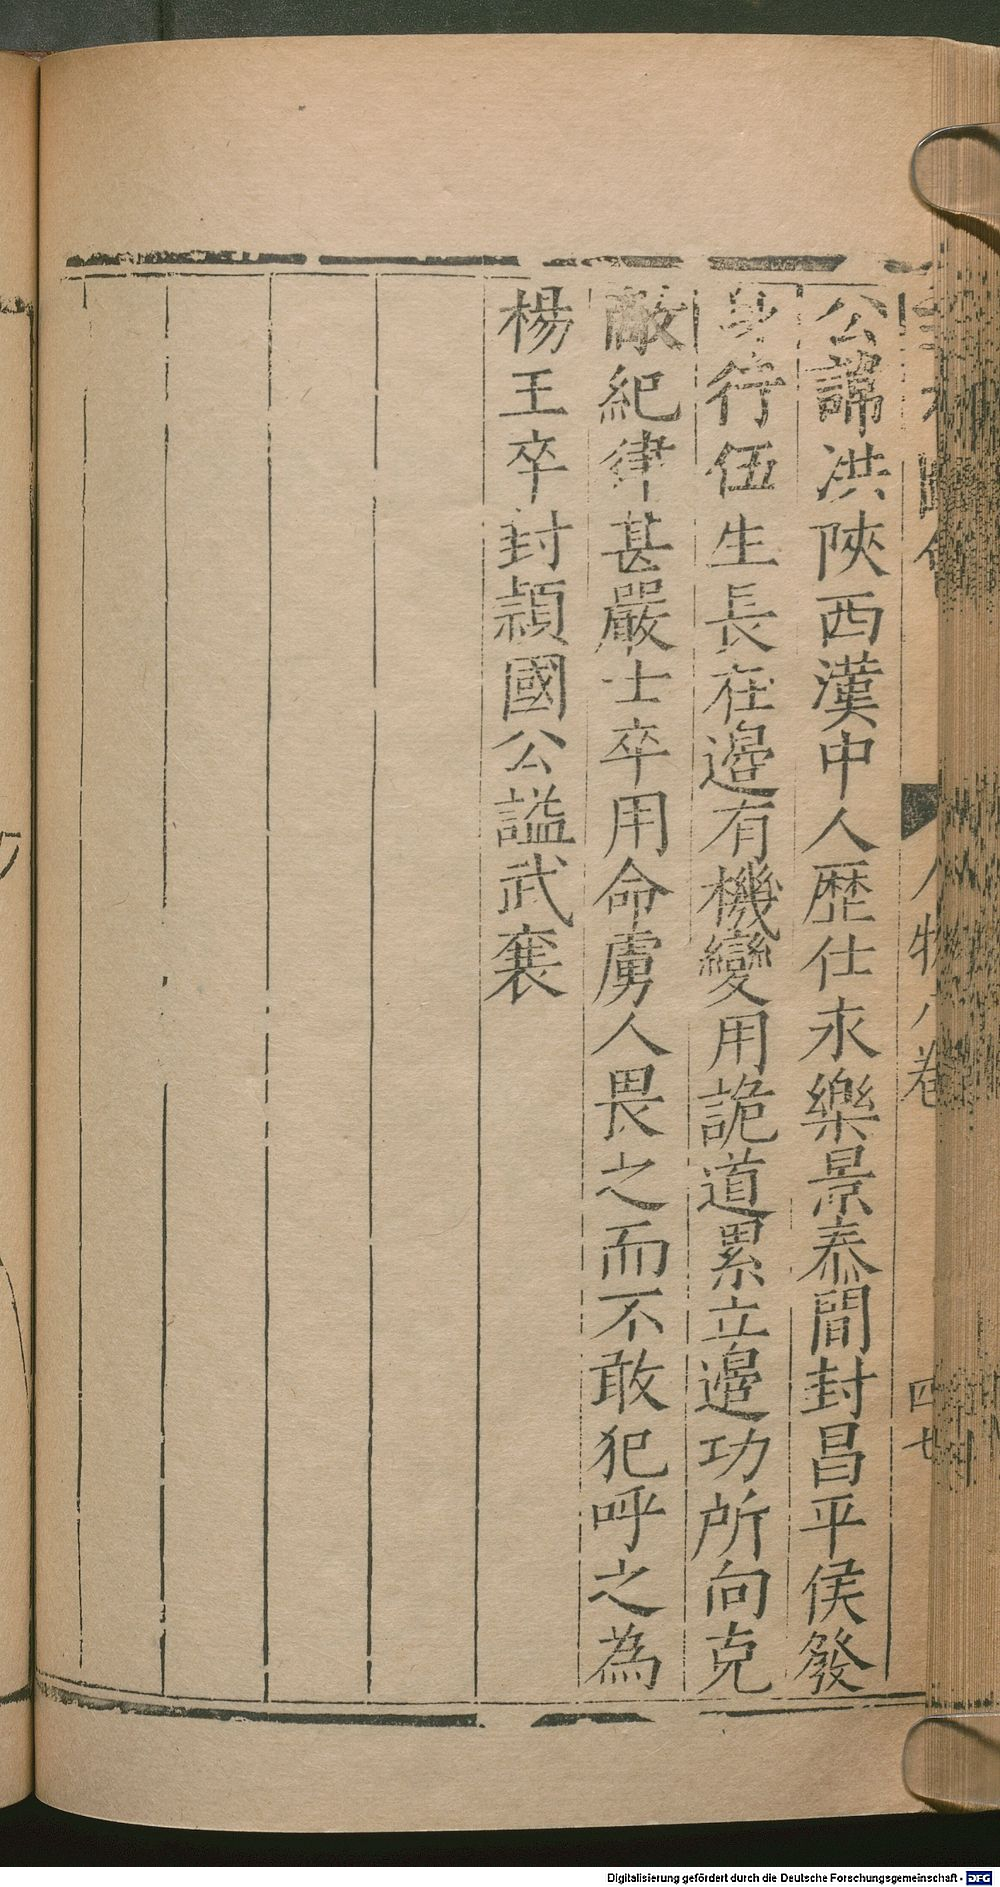 公諱洪陝西漢中人歷仕永樂景泰間封昌平侯發
身行伍生長在邊有機變用詭道累立邊功所向克
敵紀律甚嚴士卒用命虜人畏之而不敢犯呼之為
楊王卒封潁國公謚武襄
人物八卷
四七
Digitalisierung gefördert durch die Deutsche Forschungsgemeinschaft - DFG